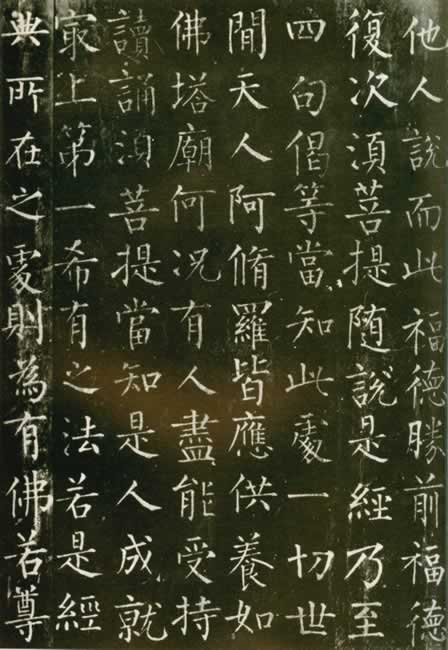 他人說而此福德勝前福德
復次湏菩提隨說是經乃至
四句偈等當知此處一切世
間天人阿脩羅皆應供養如
佛塔廟何况有人盡能受持
讀誦湏菩提當知是人成就
冣上第一希有之法若是經
典所在之處則為有佛若尊